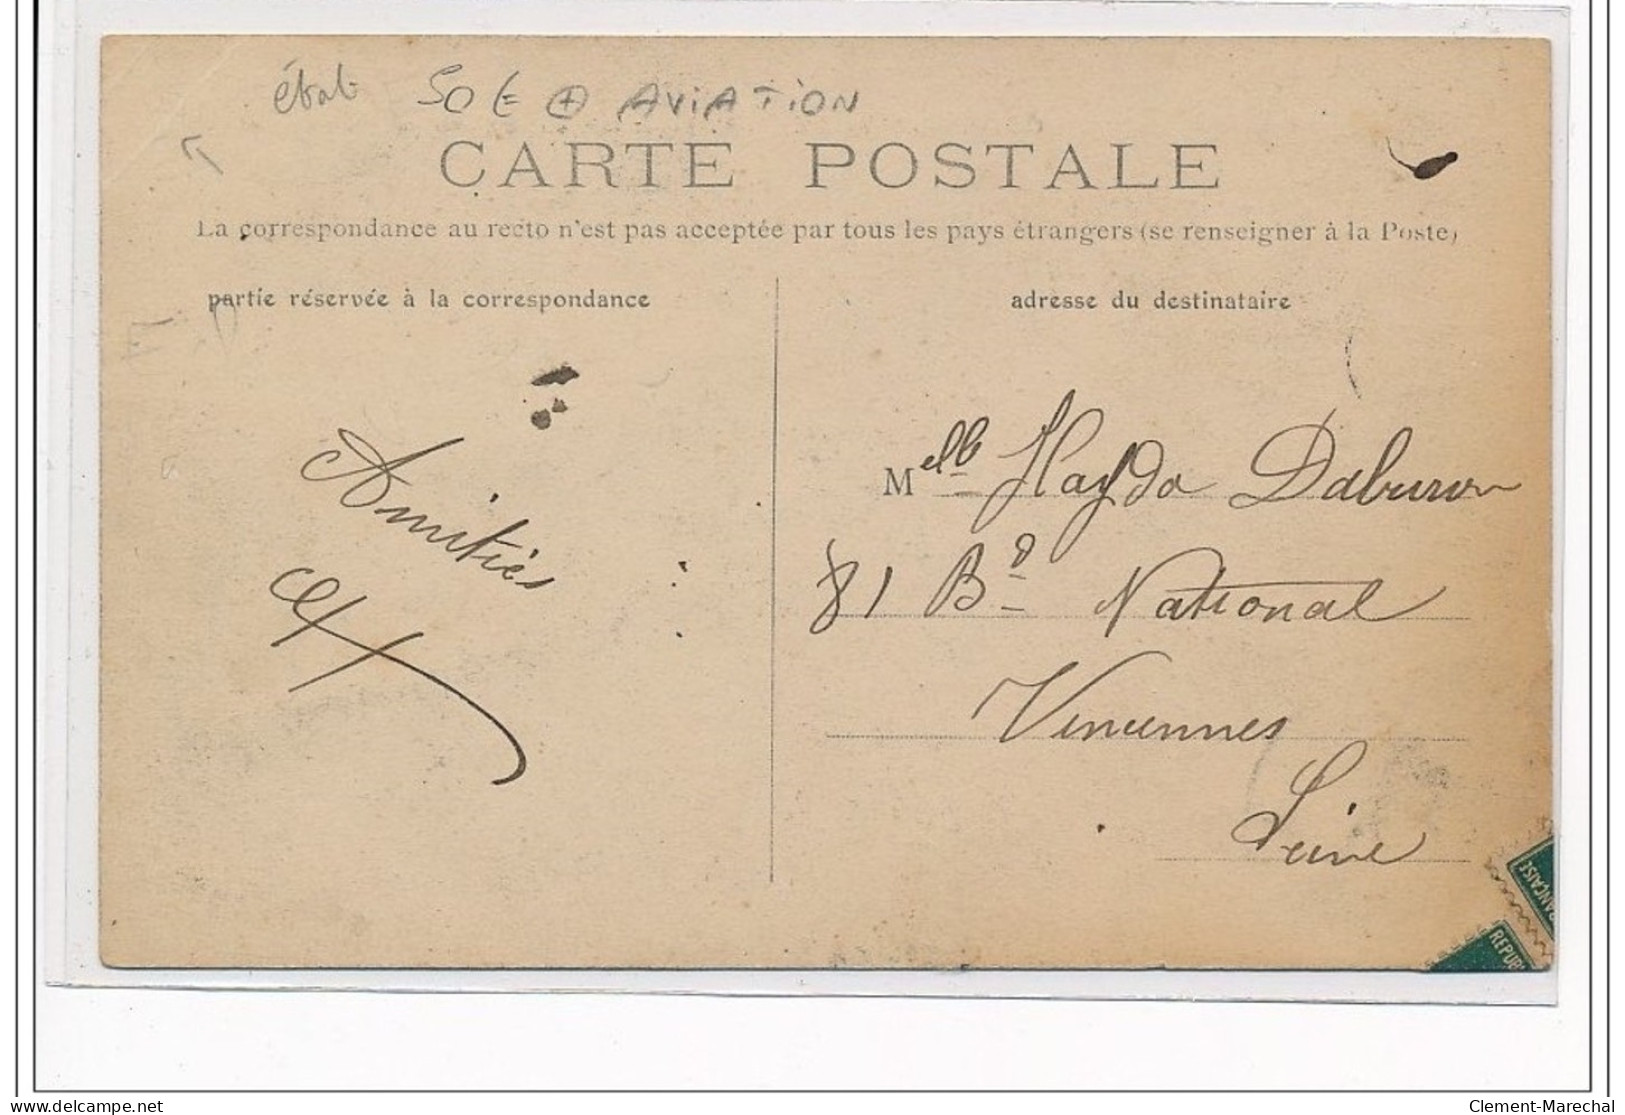 état 50 € + AVIATION
CARTE POSTALE
La correspondance au recto n'est pas acceptée par tous les pays étrangers (se renseigner à la Poste)
partie réservée à la correspondance
adresse du destinataire
Amitiés
Melle Haydo Daburon
81 Bd National
Vincennes
Seine
RANÇAISE
REPUB
Clement-Marechal